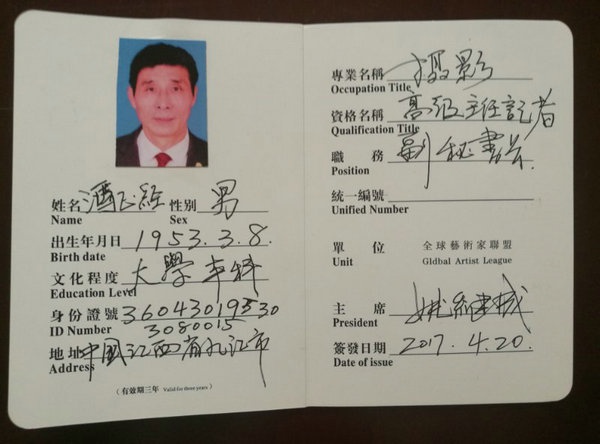 姓名 酒正經 性別 男
Name Sex
出生年月日 1953.3.8.
Birth date
文化程度 大學本科
Education Level
身份證號 360430195303080015
ID Number
地址 中國江西省九江市
Address
(有效期三年 Valid for three years)
專業名稱 攝影
Occupation Title
資格名稱 高級主任記者
Qualification Title
職務 副秘書長.
Position
統一編號
Unified Number
單位 全球藝術家聯盟
Unit Gldbal Artist League
主席
President
簽發日期 2017.4.20.
Date of issue